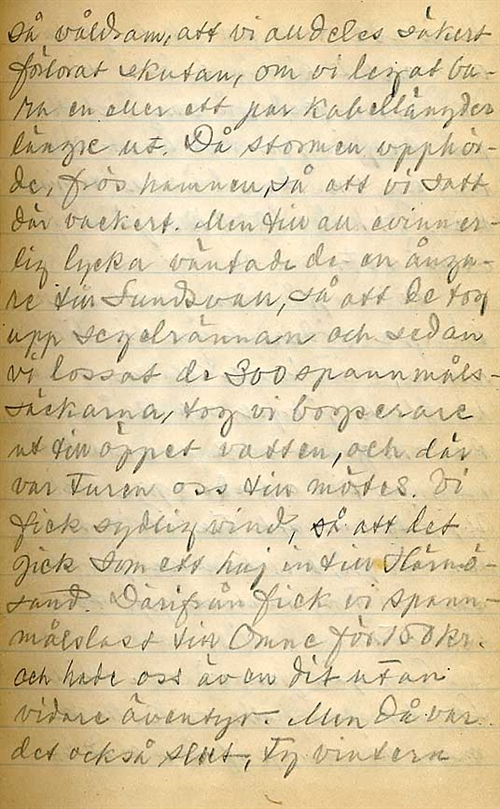 så våldsam, att vi alldeles säkert
förlorat skutan, om vi legat ba-
ra en eller ett par kabellängder
längre ut. Då stormen upphör-
de, frös hamnen, så att vi satt
där vackert. Men till all evinner-
lig lycka väntade de en ånga-
re till Sundsvall, så att de tog
upp segelrännan och sedan
vi lossat de 300 spannmåls-
säckarna, tog vi bogserare
ut till öppet vatten, och där
var turen oss till mötes. Vi
fick sydlig vind, så att det
gick som ett huj in till Härnö-
sand. Därifrån fick vi spann-
målslast till Omne för 150 kr.
och hade oss även dit utan
vidare äventyr. Men då var
det också slut, ty vintern